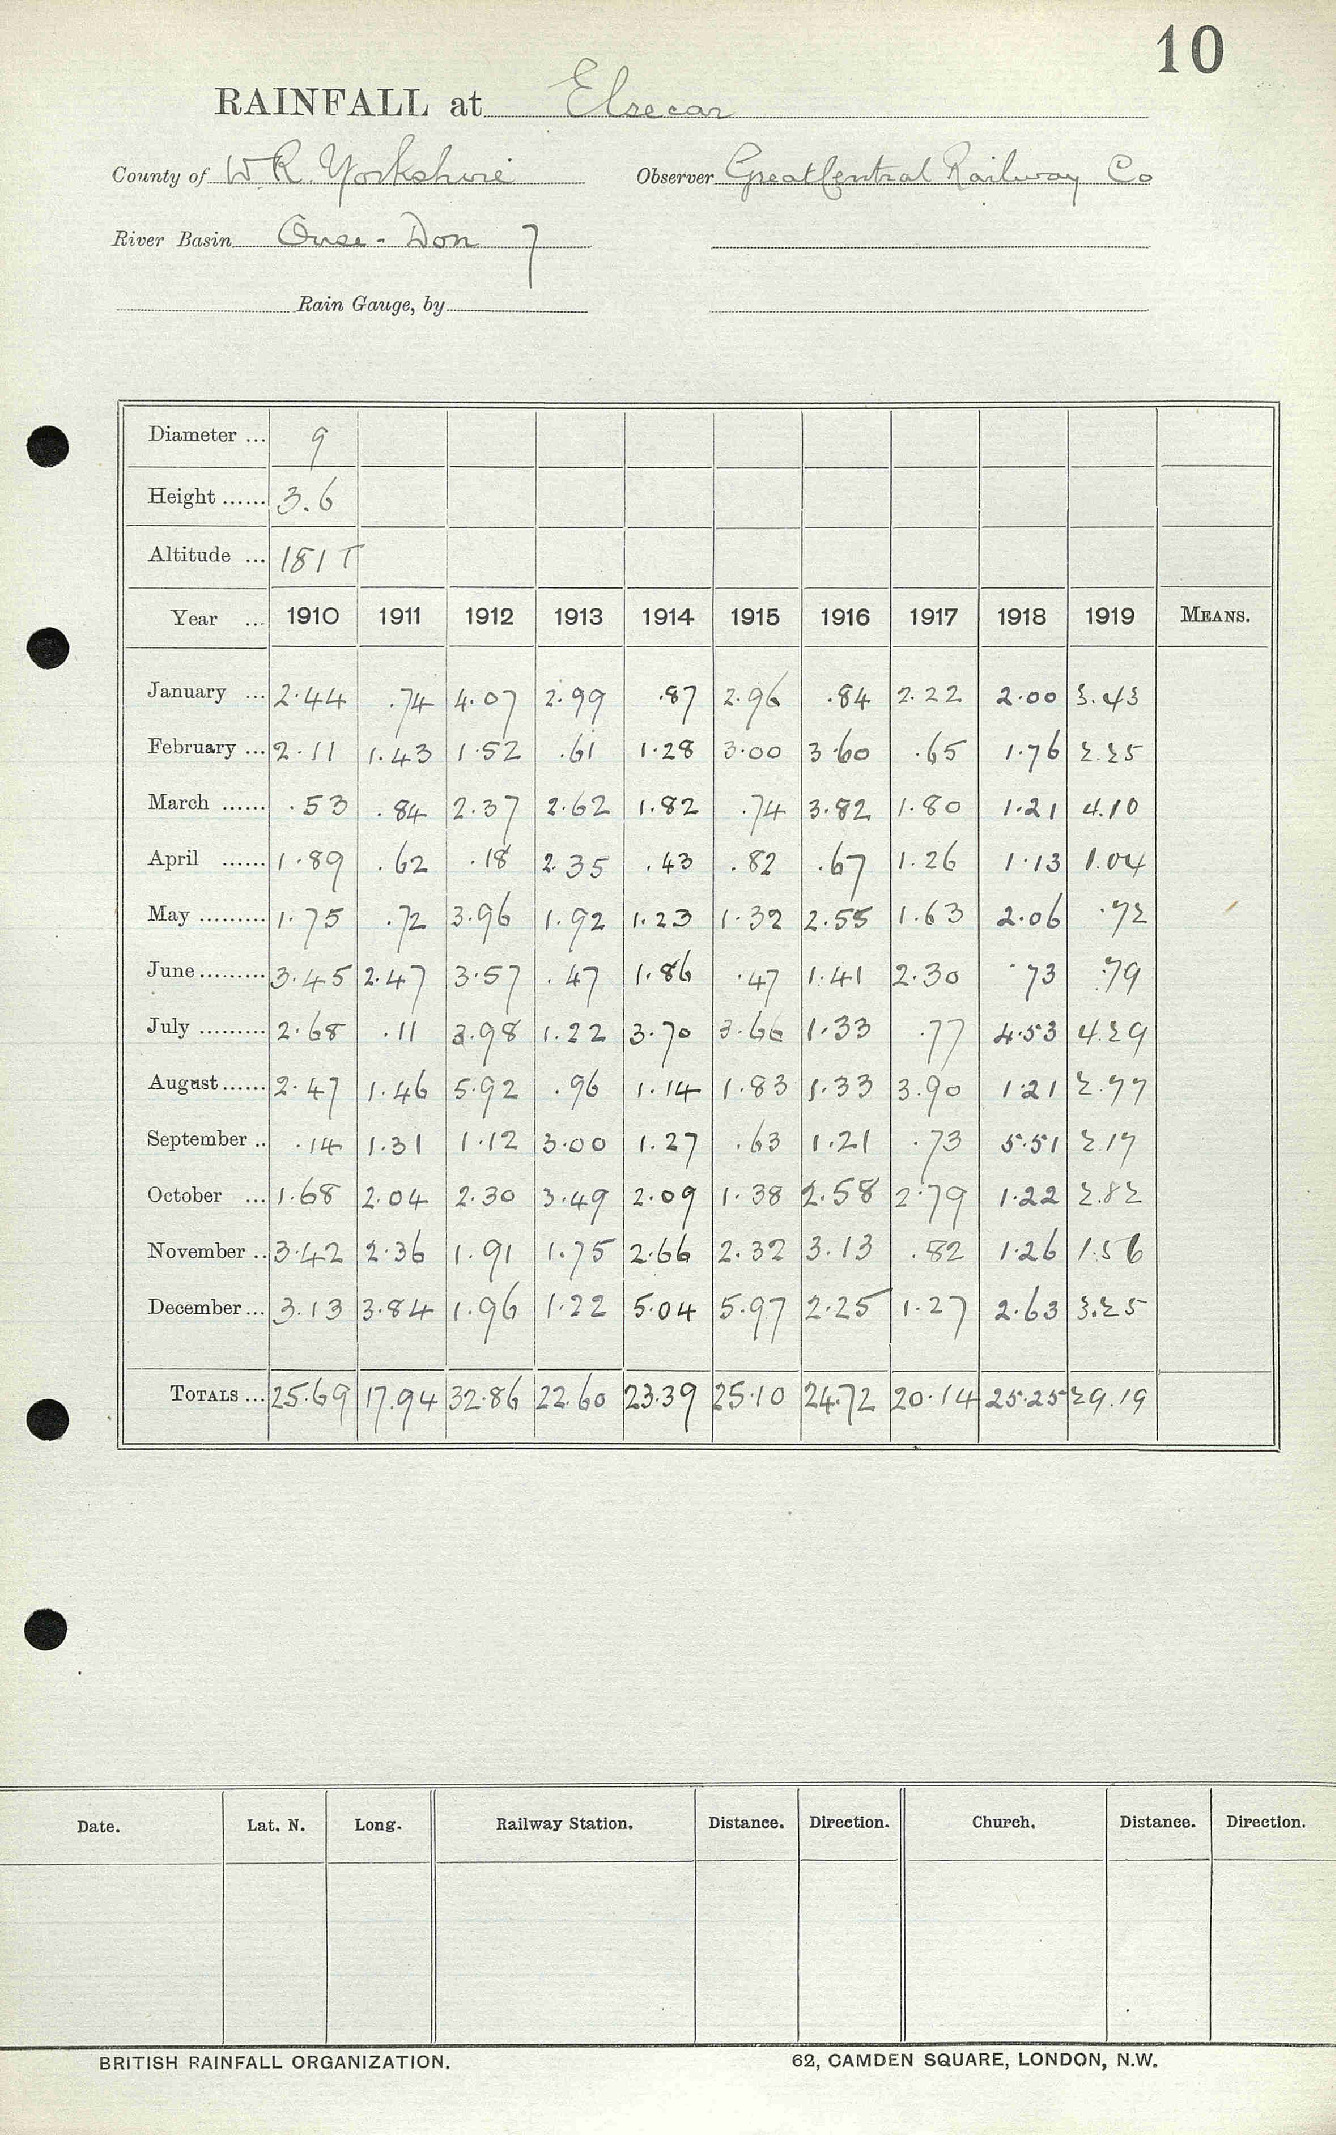 10
RAINFALL at Elsecar
County of W.R. Yorkshire Observer Great Central Railway Co
River Basin Ouse - Don 7
Rain Gauge, by
Diameter ... 9
Height ...... 3.6
Altitude ... 181 T
Year ... 1910 1911 1912 1913 1914 1915 1916 1917 1918 1919 MEANS.
January ... 2.44 .74 4.07 2.99 .87 2.96 .84 2.22 2.00 3.43
February ... 2.11 1.43 1.52 .61 1.28 3.00 3.60 .65 1.76 2.25
March ...... .53 .84 2.37 2.62 1.82 .74 3.82 1.80 1.21 4.10
April ...... 1.89 .62 .18 2.35 .43 .82 .67 1.26 1.13 1.04
May ......... 1.75 .72 3.96 1.92 1.23 1.32 2.55 1.63 2.06 .72
June ......... 3.45 2.47 3.57 .47 1.86 .47 1.41 2.30 .73 .79
July ......... 2.68 .11 3.98 1.22 3.70 3.66 1.33 .77 4.53 4.29
August ...... 2.47 1.46 5.92 .96 1.14 1.83 1.33 3.90 1.21 2.77
September .. .14 1.31 1.12 3.00 1.27 .63 1.21 .73 5.51 2.17
October ... 1.68 2.04 2.30 3.49 2.09 1.38 2.58 2.79 1.22 2.82
November .. 3.42 2.36 1.91 1.75 2.66 2.32 3.13 .82 1.26 1.56
December ... 3.13 3.84 1.96 1.22 5.04 5.97 2.25 1.27 2.63 3.25
TOTALS ... 25.69 17.94 32.86 22.60 23.39 25.10 24.72 20.14 25.25 29.19
Date. Lat. N. Long. Railway Station. Distance. Direction. Church. Distance. Direction.
BRITISH RAINFALL ORGANIZATION. 62, CAMDEN SQUARE, LONDON, N.W.